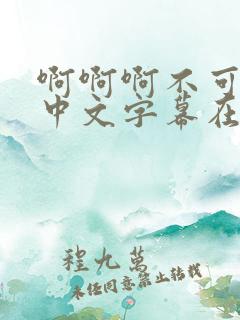 啊啊啊不可
中文字幕在
程九萬
未经同意禁止转载